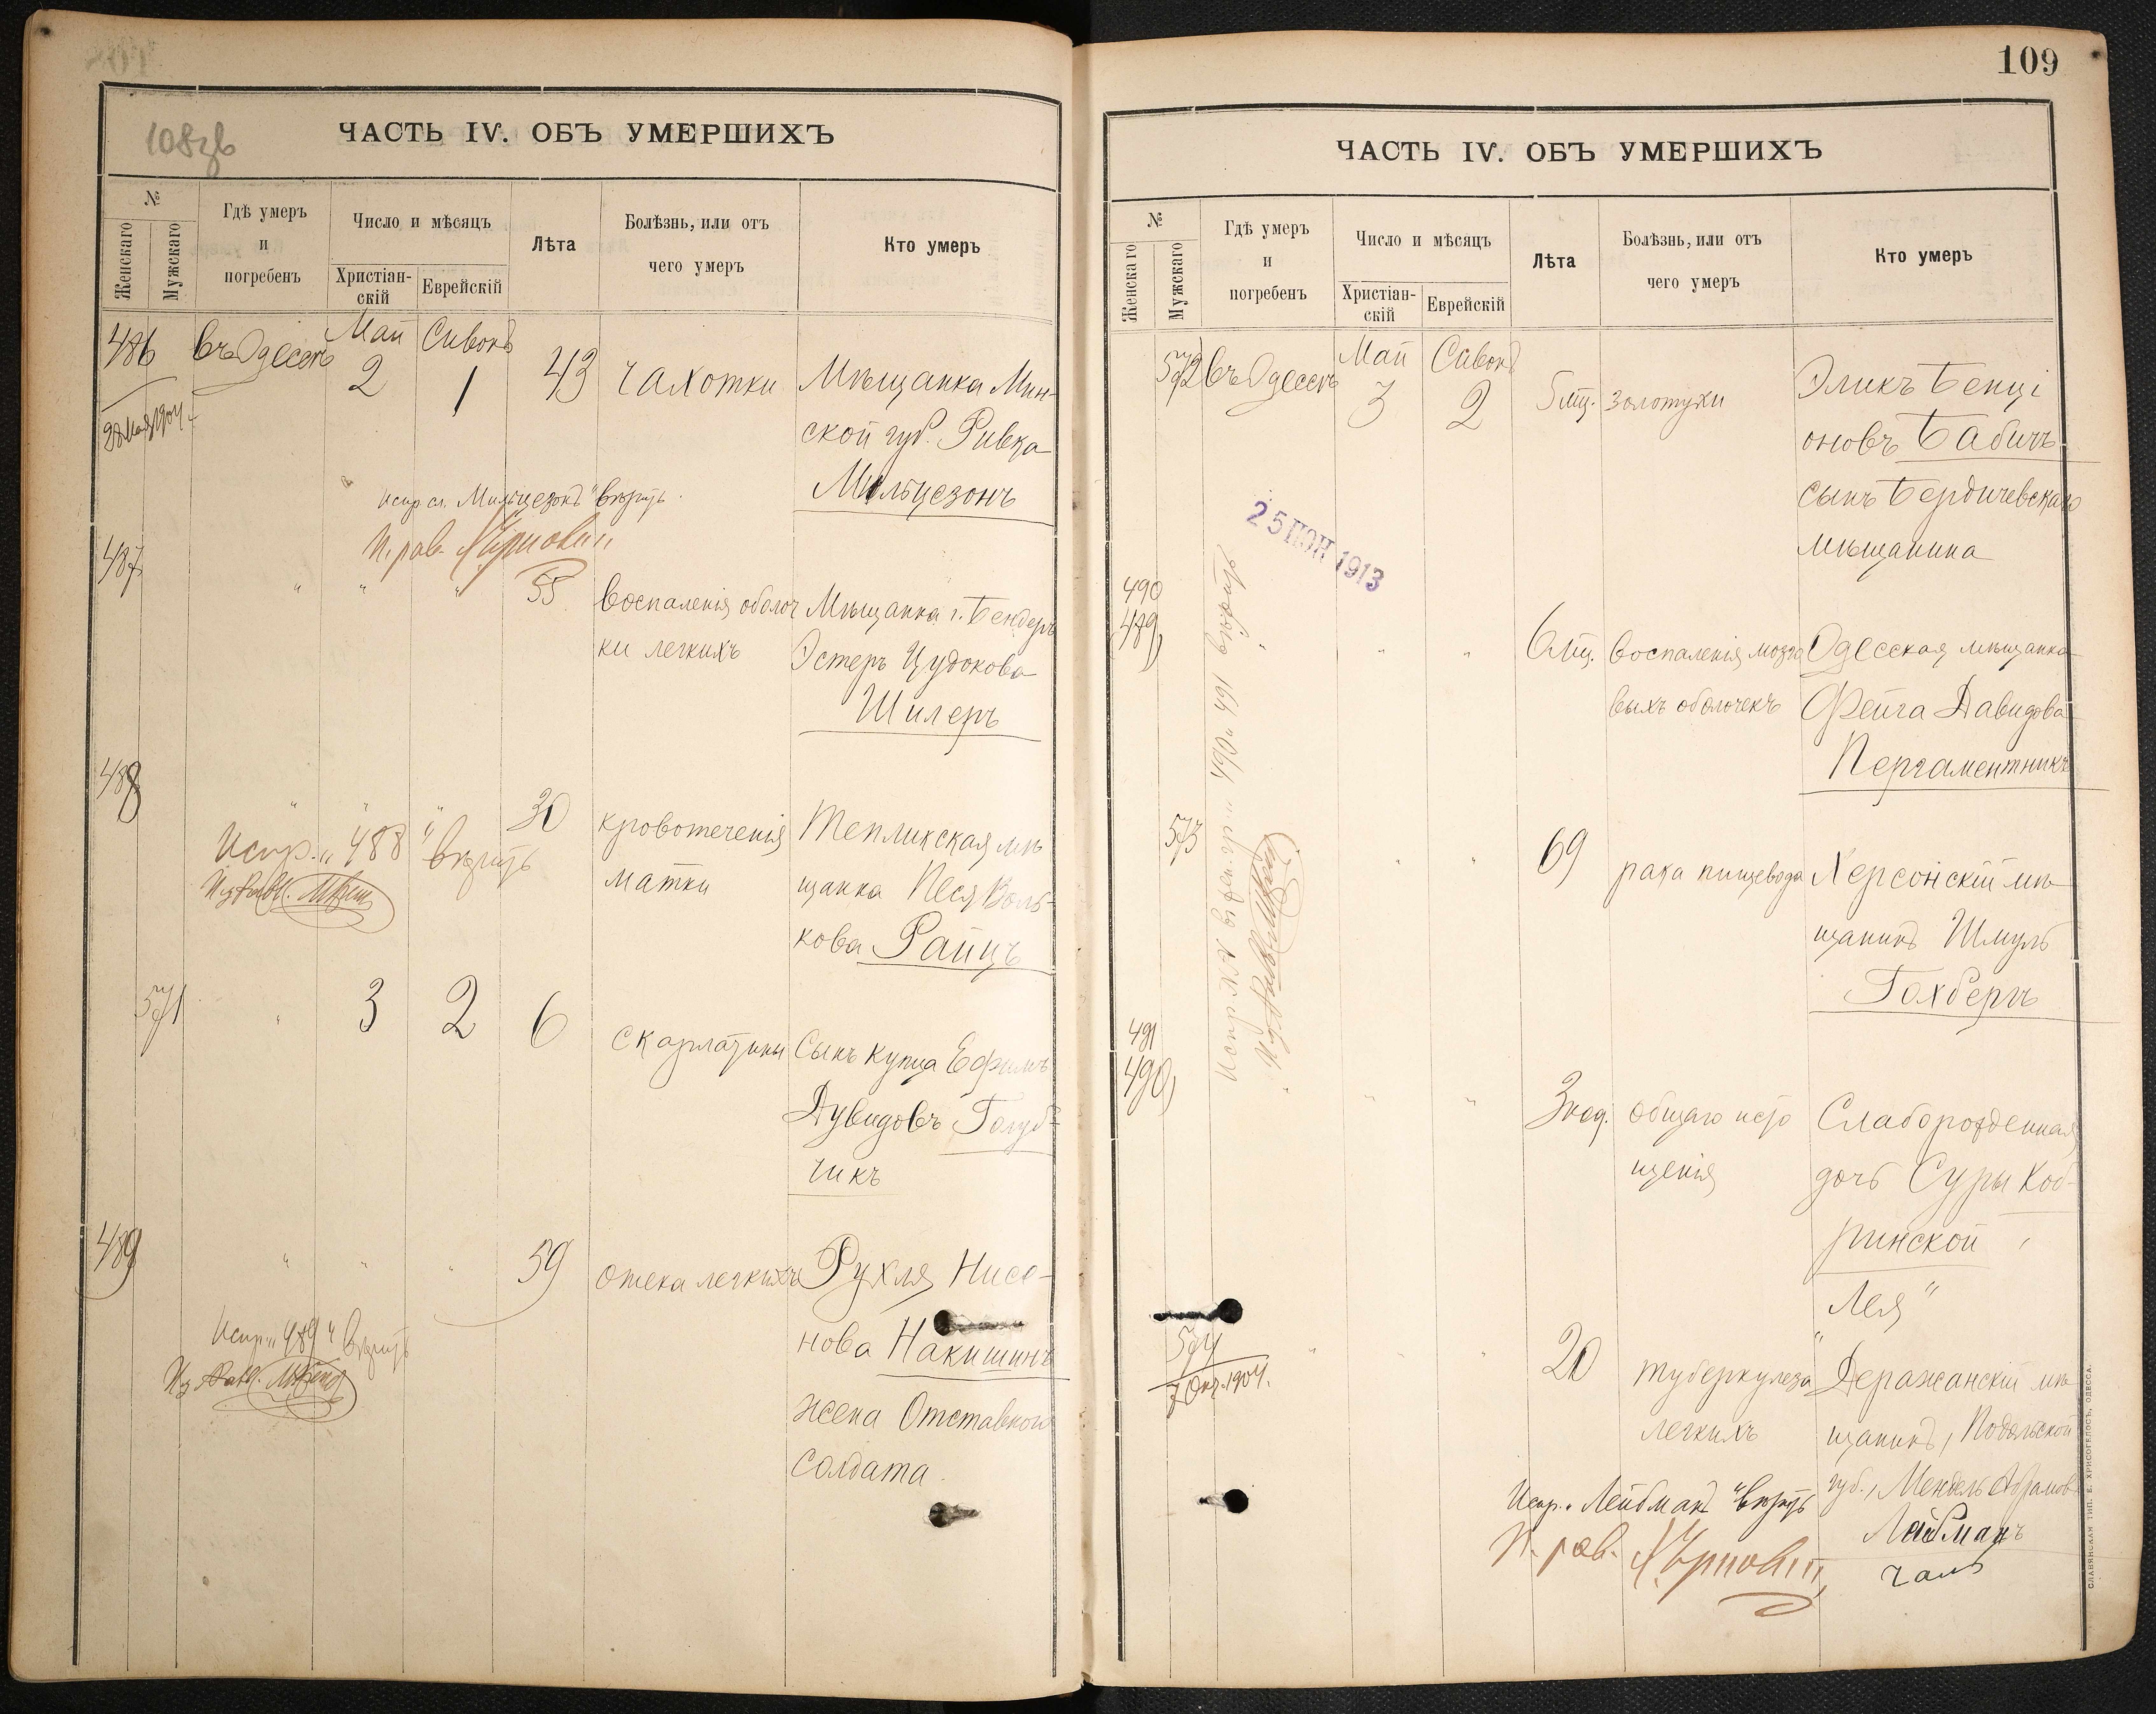 108зв
ЧАСТЬ IV. ОБЪ УМЕРШИХЪ
№
Женскаго
Мужскаго
Гдѣ умеръ
и
погребенъ
Число и мѣсяцъ
Христіан-
скій
Еврейскій
Лѣта
Болѣзнь, или отъ
чего умеръ
Кто умеръ
486
28 мая 1904
въ Одессѣ
Май
2
Сивонъ
1
43
чахотки
Мѣщанка Мин-
ской губ. Ривка
Мильцезонъ
испр. сл. Мильцезонъ "вѣрить
И. рав.
487
" " "
55
воспаленія оболоч
ки легкихъ
Мѣщанка г. Бендеръ
Эстеръ Цудокова
Шилеръ
488
" " "
30
кровотеченія
матки
Тепликская мѣ
щанка Песя Воль-
кова Райцъ
Испр. "488" вѣрить
571
"
3
2
6
скарлатины
Сынъ купца Ефимъ
Дувидовъ Голуб-
чикъ
489
" " "
59
отека легкихъ
Рухля Нисо-
нова Накишинъ
жена Отставного
солдата
Испр. "489" вѣрить
109
ЧАСТЬ IV. ОБЪ УМЕРШИХЪ
№
Женскаго
Мужскаго
Гдѣ умеръ
и
погребенъ
Число и мѣсяцъ
Христіан-
скій
Еврейскій
Лѣта
Болѣзнь, или отъ
чего умеръ
Кто умеръ
572
въ Одессѣ
Май
3
Сивонъ
2
5 мц.
золотухи
Эликъ Бенці
оновъ Бабичъ
сынъ Бердичевскаго
мѣщанина
25 ІЮН 1913
490
489
" "
6 мц.
воспаленія мозго
выхъ оболочекъ
Одесская мѣщанка
Фейга Давидова
Пергаментникъ
573
" "
69
рака пищевода
Херсонскій мѣ
щанинъ Шмуль
Гохбергъ
491
490
" "
3 нед.
общаго исто
щенія
Слаборожденная
дочь Суры Коб-
ринской
Лея"
574
7 Окт. 1904.
" " "
20
туберкулеза
легкихъ
Деражанскій мѣ
щанинъ, Подольской
губ., Мендель Абрамовъ
Лейбманъ
Испр. "Лейбманъ" вѣрить
И. рав.
СЛАВЯНСКАЯ ТИП. Е. ХРИСОГЕЛОСЪ, ОДЕССА.